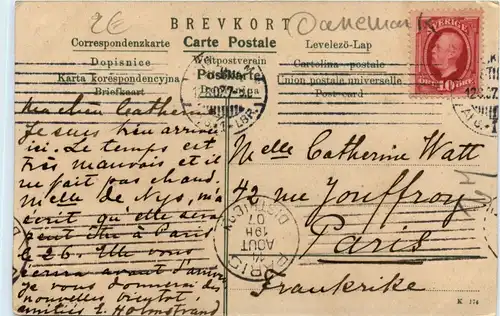 2E
Danemark
BREVKORT
Correspondenzkarte
Carte Postale
Levelező-Lap
Dopisnice
Weltpostverein
Cartolina postale
Karta korespondencyjna
Postkarte
Union postale universelle
Briefkaart
Post-card
SVERIGE
10 ÖRE 10
Ma chère Catherine
Je suis bien arrivée
ici. Le temps est
très mauvais et il
ne fait pas chaud.
Melle de Nys, m'a
écrit qu'elle sera
peut être à Paris
le 26. Elle vous
écrira avant d'arriver
je vous donnerai des
nouvelles bientôt,
amitiés E. Holmstrand
Melle Catherine Watt
42 rue Jouffroy
Paris
Frankrike
PARIS
19H
14
AOUT
07
DISTRIBUTION
K 174